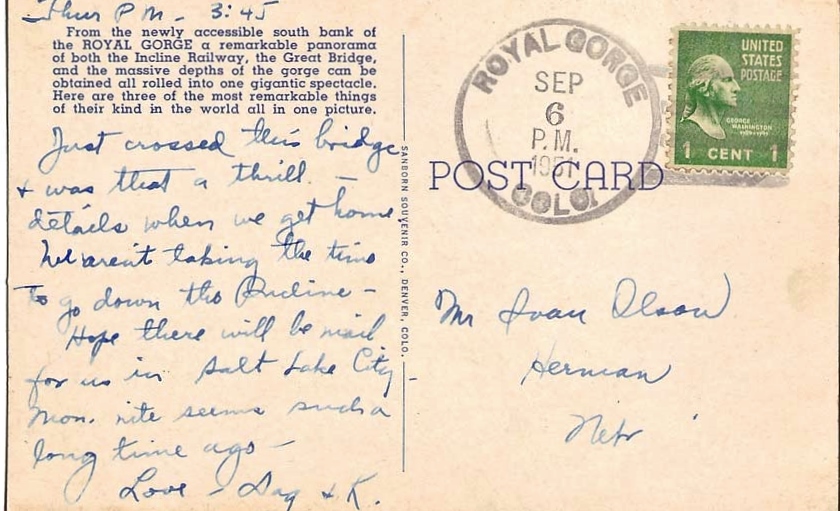 Thur P.M. 3:45
From the newly accessible south bank of
the ROYAL GORGE a remarkable panorama
of both the Incline Railway, the Great Bridge,
and the massive depths of the gorge can be
obtained all rolled into one gigantic spectacle.
Here are three of the most remarkable things
of their kind in the world all in one picture.
Just crossed this bridge
+ was that a thrill. —
details when we get home
We aren't taking the time
to go down the Incline —
Hope there will be mail
for us in Salt Lake City -
Mon. nite seems such a
long time ago —
Love - Dag & K.
SANBORN SOUVENIR CO., DENVER, COLO.
POST CARD
ROYAL GORGE
SEP
6
P.M.
1951
COLO.
UNITED
STATES
POSTAGE
GEORGE
WASHINGTON
1 CENT 1
Mr Ivan Olson
Herman
Nebr